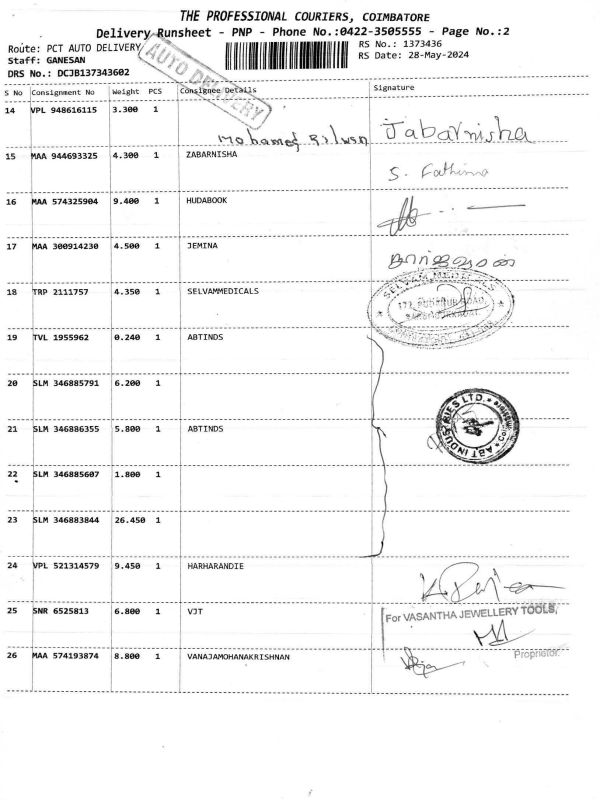 THE PROFESSIONAL COURIERS, COIMBATORE
Delivery Runsheet - PNP - Phone No.:0422-3505555 - Page No.:2
Route: PCT AUTO DELIVERY
RS No.: 1373436
Staff: GANESAN
RS Date: 28-May-2024
DRS No.: DCJB137343602
AUTO DELIVERY
S No Consignment No Weight PCS Consignee Details Signature
14 VPL 948616115 3.300 1
Mohamed Rilwan Jabarnisha
15 MAA 944693325 4.300 1 ZABARNISHA
S. Fathima
16 MAA 574325904 9.400 1 HUDABOOK
17 MAA 300914230 4.500 1 JEMINA
18 TRP 2111757 4.350 1 SELVAMMEDICALS
SELVAM MEDICALS
19 TVL 1955962 0.240 1 ABTINDS
20 SLM 346885791 6.200 1
21 SLM 346886355 5.800 1 ABTINDS
ABT INDUSTRIES LTD.
22 SLM 346885607 1.800 1
23 SLM 346883844 26.450 1
24 VPL 521314579 9.450 1 HARHARANDIE
25 SNR 6525813 6.800 1 VJT
For VASANTHA JEWELLERY TOOLS,
Proprietor.
26 MAA 574193874 8.800 1 VANAJAMOHANAKRISHNAN